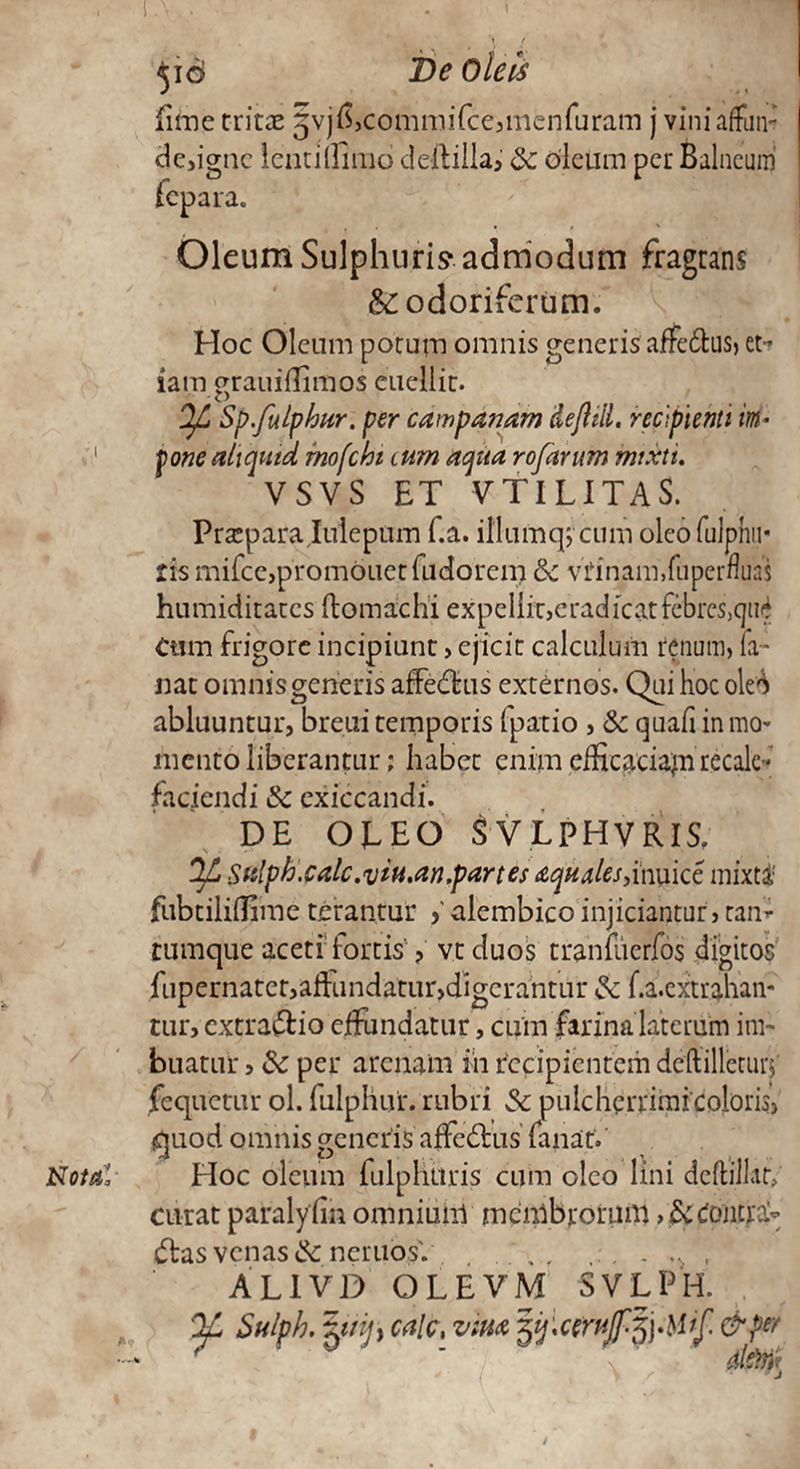 510 De Oleis
ſime tritæ ℥vjß, commiſce, menſuram j vini affun-
de, igne lentiſſimo deſtilla, & oleum per Balneum
ſepara.
Oleum Sulphuris admodum fragrans
& odoriferum.
Hoc Oleum potum omnis generis affectus, et-
iam grauiſſimos euellit.
℞ Sp. ſulphur. per campanam deſtill. recipienti im-
pone aliquid moſchi cum aqua roſarum mixti.
VSVS ET VTILITAS.
Præpara Iulepum ſ.a. illumq; cum oleo ſulphu-
ris miſce, promouet ſudorem & vrinam, ſuperfluas
humiditates ſtomachi expellit, eradicat febres, quæ
cum frigore incipiunt, ejicit calculum renum, ſa-
nat omnis generis affectus externos. Qui hoc oleo
abluuntur, breui temporis ſpatio, & quaſi in mo-
mento liberantur; habet enim efficaciam recale-
faciendi & exiccandi.
DE OLEO SVLPHVRIS.
℞ Sulph. calc. viu. an. partes æquales, inuicē mixta
ſubtiliſſime terantur, alembico injiciantur, tan-
tumque aceti fortis, vt duos tranſuerſos digitos
ſupernatet, affundatur, digerantur & ſ.a. extrahan-
tur, extractio effundatur, cum farina laterum im-
buatur, & per arenam in recipientem deſtilletur;
ſequetur ol. ſulphur. rubri & pulcherrimi coloris,
quod omnis generis affectus ſanat.
Nota. Hoc oleum ſulphuris cum oleo lini deſtillat,
curat paralyſin omnium membrorum, & contra-
ctas venas & neruos.
ALIVD OLEVM SVLPH.
℞ Sulph. ℥iij, calc. viuæ ℥ij. ceruſſ. ℥j. Miſ. & per
alem-